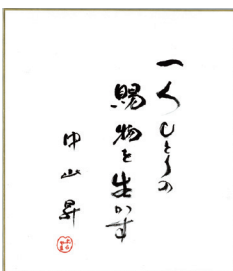 一人ひとりの
賜物を生かす
中山昇